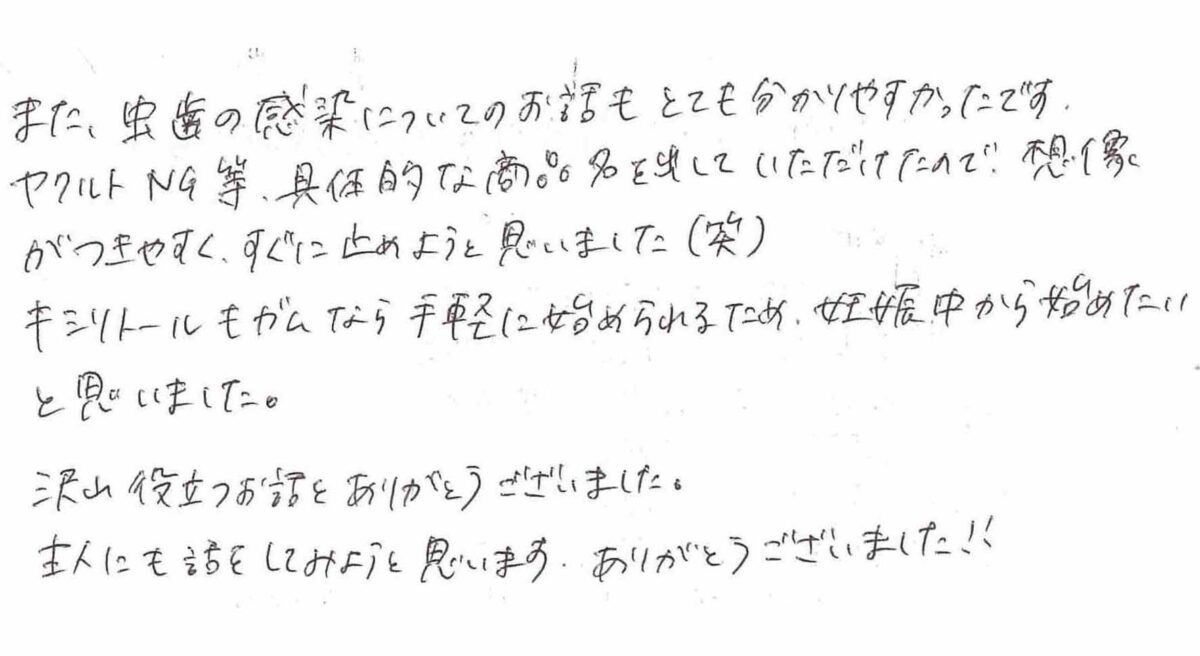 また、虫歯の感染についてのお話もとても分かりやすかったです.
ヤクルトNG等、具体的な商品名を出していただけたので、想像
がつきやすく、すぐに止めようと思いました(笑)
キシリトールもガムなら手軽に始められるため、妊娠中から始めたい
と思いました。
沢山役立つお話をありがとうございました。
主人にも話をしてみようと思います. ありがとうございました!!